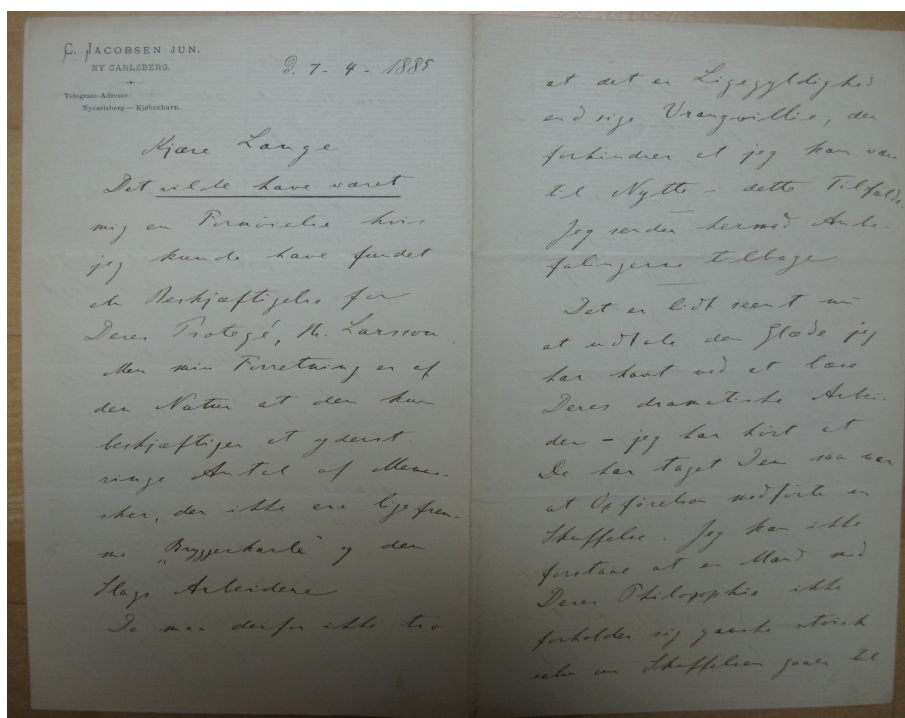 C. JACOBSEN JUN.
NY CARLSBERG.
Telegram-Adresse:
Nycarlsberg — Kjøbenhavn.
d. 7 - 4 - 1885
Kjære Lange
Det vilde have været
mig en Fornøielse hvis
jeg kunde have fundet
en Beskjæftigelse for
Deres Protegé, Hr. Larsson.
Men min Forretning er af
den Natur at den kun
beskjæftiger et yderst
ringe Antal af Menne-
sker, der ikke ere ligefrem-
me "Bryggerkarle" og den
Slags Arbeidere
De maa derfor ikke tro
at det er Ligegyldighed
end sige Vrangvillie, der
forhindrer at jeg kan være
til Nytte i dette Tilfælde.
Jeg sender hermed Anbe-
falingerne tilbage
Det er lidt seent nu
at udtale den Glæde jeg
har havt ved at læse
Deres dramatiske Arbei-
der – jeg har hørt at
De har taget Dem saa nær
at Opførelsen medførte en
Skuffelse. Jeg kan ikke
forstaae at en Mand med
Deres Philosophie ikke
forholder sig ganske stoisk
selv om Skuffelsen gaaer til